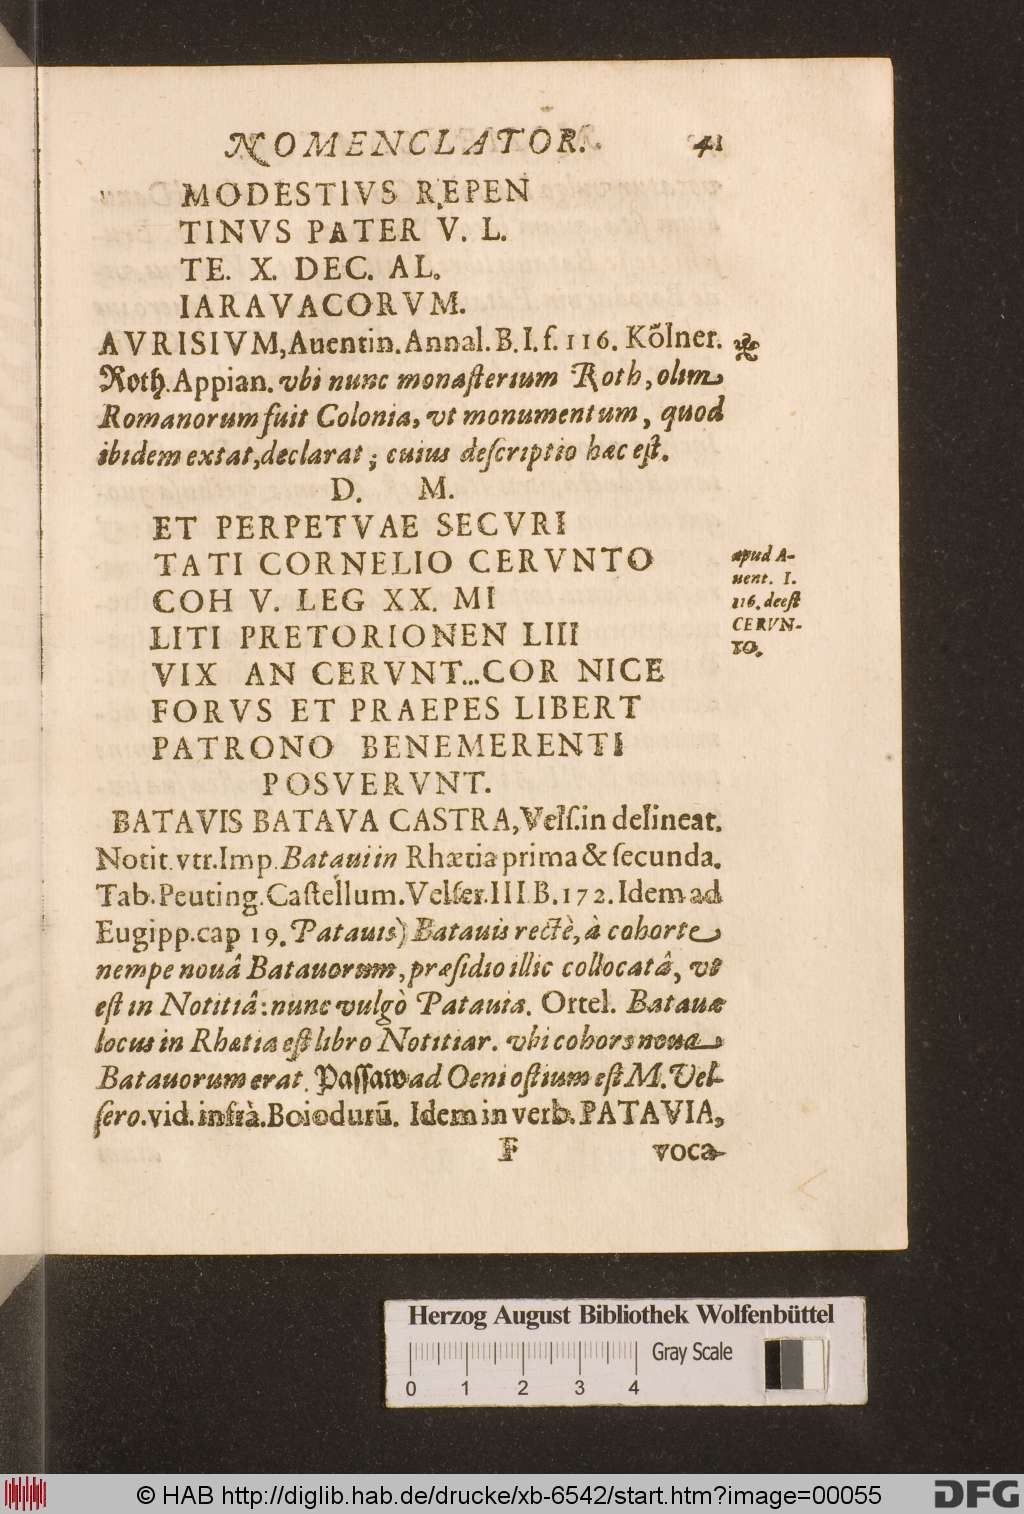 NOMENCLATOR. 41
MODESTIVS REPEN
TINVS PATER V. L.
TE. X. DEC. AL.
IARAVACORVM.
AVRISIVM, Auentin. Annal. B. I. f. 116. Kőlner.
Roth. Appian. vbi nunc monaſterium Roth, olim
Romanorum fuit Colonia, vt monumentum, quod
ibidem extat, declarat; cuius deſcriptio hæc eſt.
D. M.
ET PERPETVAE SECVRI
TATI CORNELIO CERVNTO
COH V. LEG XX. MI
LITI PRETORIONEN LIII
VIX AN CERVNT...COR NICE
FORVS ET PRAEPES LIBERT
PATRONO BENEMERENTI
POSVERVNT.
apud A-
uent. I.
116. deeſt
CERVN-
TO.
BATAVIS BATAVA CASTRA, Velſ. in delineat.
Notit. vtr. Imp. Bataui in Rhætia prima & ſecunda.
Tab. Peuting. Caſtellum. Velſer. III B. 172. Idem ad
Eugipp. cap 19. Patauis) Batauis rectè, à cohorte
nempe nouâ Batauorum, præſidio illic collocatâ, vt
eſt in Notitiâ: nunc vulgò Patauia. Ortel. Batauæ
locus in Rhætia eſt libro Notitiar. vbi cohors noua
Batauorum erat. Paſſaw ad Oeni oſtium eſt M. Vel-
ſero. vid. infrà. Boiodurū. Idem in verb. PATAVIA,
F voca-
Herzog August Bibliothek Wolfenbüttel
Gray Scale
0 1 2 3 4
© HAB http://diglib.hab.de/drucke/xb-6542/start.htm?image=00055
DFG